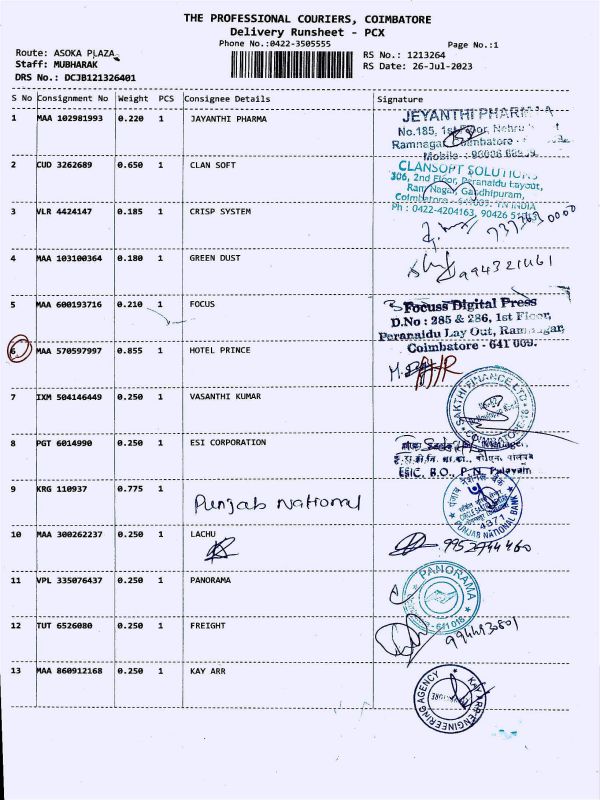 THE PROFESSIONAL COURIERS, COIMBATORE
Delivery Runsheet - PCX
Phone No.:0422-3505555
Page No.:1
Route: ASOKA PLAZA
Staff: MUBHARAK
DRS No.: DCJB121326401
RS No.: 1213264
RS Date: 26-Jul-2023
S No Consignment No Weight PCS Consignee Details Signature
1 MAA 102981993 0.220 1 JAYANTHI PHARMA
JEYANTHI PHARMA
No.185, 1st Floor, Nehru
Ramnagar, Coimbatore -
Mobile
2 CUD 3262689 0.650 1 CLAN SOFT
CLANSOFT SOLUTIONS
306, 2nd Floor, Peranaidu Layout,
Ram Nagar, Gandhipuram,
Coimbatore - 641009. TN INDIA
Ph : 0422-4204163, 90426
3 VLR 4424147 0.185 1 CRISP SYSTEM
4 MAA 103100364 0.180 1 GREEN DUST
5 MAA 600193716 0.210 1 FOCUS
Focuss Digital Press
D.No : 285 & 286, 1st Floor,
Peranaidu Lay Out, Ramnagar,
Coimbatore - 641 009.
6 MAA 570597997 0.855 1 HOTEL PRINCE
7 IXM 504146449 0.250 1 VASANTHI KUMAR
SAKTHI FINANCE LTD
COIMBATORE
8 PGT 6014990 0.250 1 ESI CORPORATION
Manager,
ESIC, B.O., P.N. Palayam
9 KRG 110937 0.775 1
Punjab National
पंजाब नैशनल बैंक
4371
PUNJAB NATIONAL BANK
10 MAA 300262237 0.250 1 LACHU
9952744460
11 VPL 335076437 0.250 1 PANORAMA
PANORAMA
641 018
12 TUT 6526080 0.250 1 FREIGHT
13 MAA 860912168 0.250 1 KAY ARR
KAY ARR ENGINEERING AGENCY